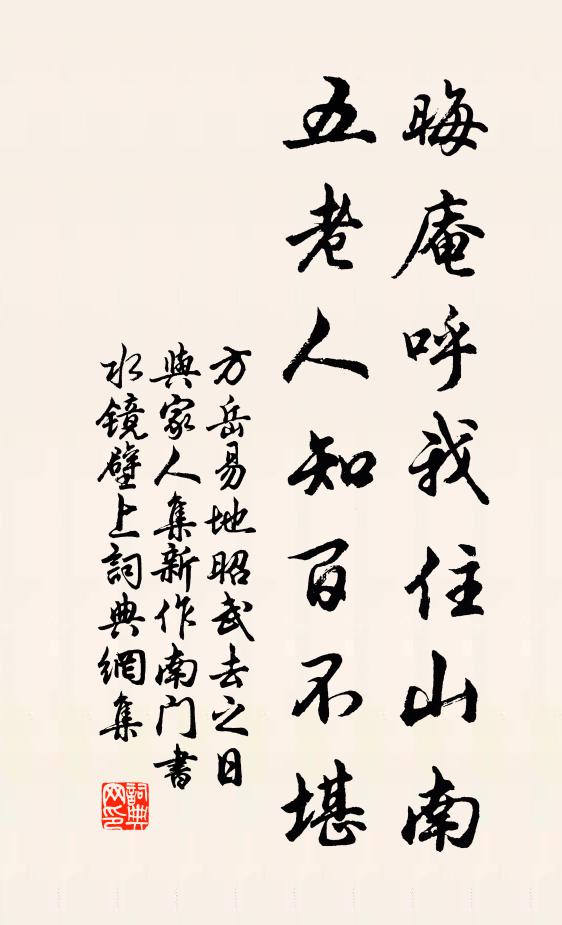 晦庵呼我住山南
五老人知百不堪
方岳易地昭武去之日
與家人集新作南门書
水鏡壁上詞典網集
詞典网印